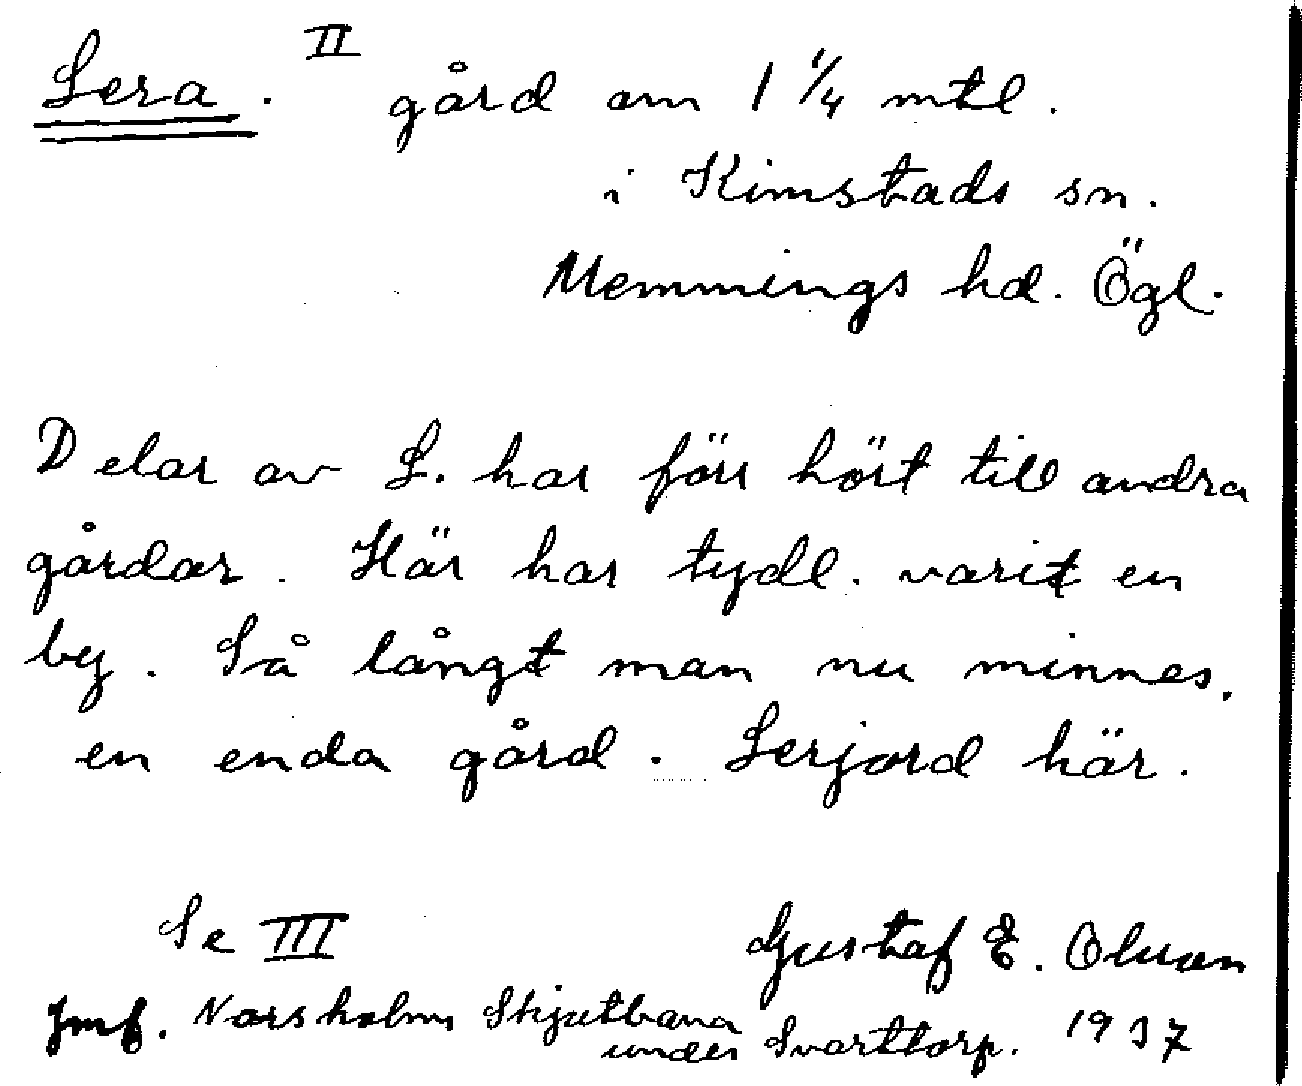 Lera. II gård om 1 1/4 mtl.
i Kimstads sn.
Memmings hd. Ögl.
Delar av L. har förr hört till andra
gårdar. Här har tydl. varit en
by. Så långt man nu minnes,
en enda gård. Lerjord här.
Se III
Gustaf E. Olsson
Jmf. Norsholms Skjutbana
under Svarttorp. 1937